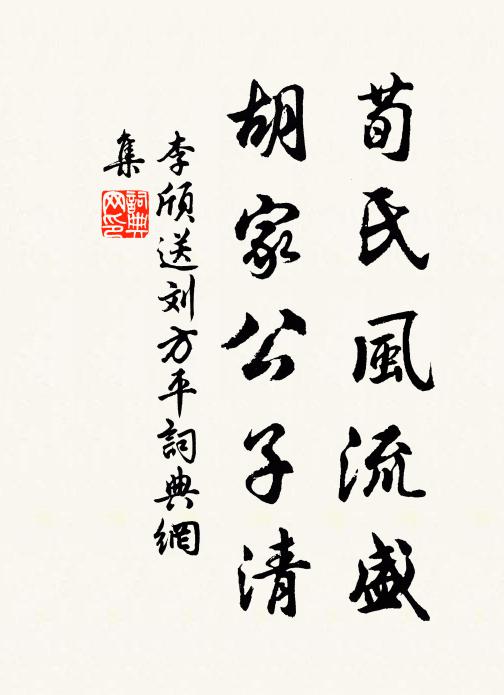 荀氏風流盛
胡家公子清
李頎送刘方平詞典網
集
詞典网印